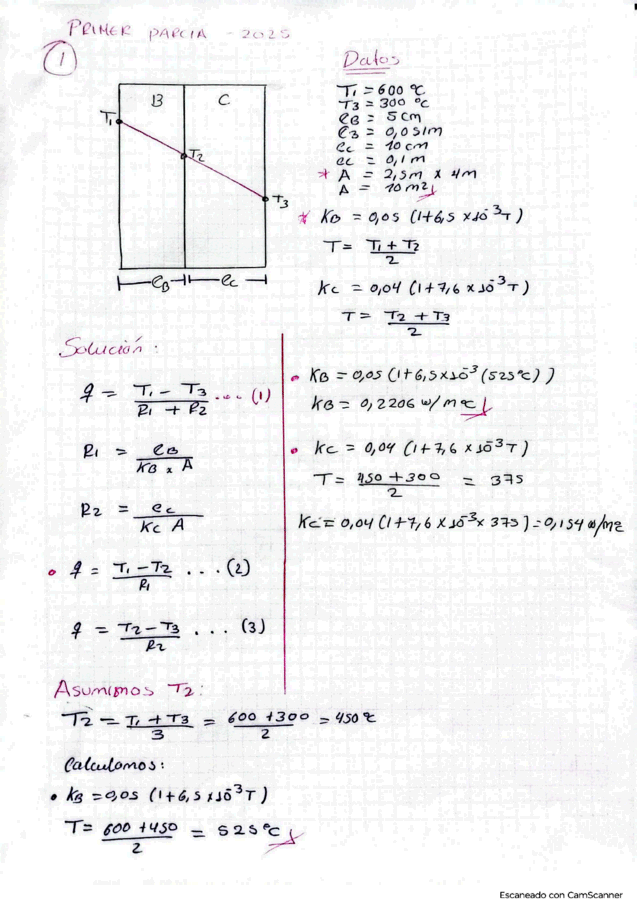 PRIMER PARCIA - 2025
1
Datos
B
C
T1
T2
T3
eB
ec
T1 = 600 °C
T3 = 300 °C
eB = 5cm
e3 = 0,051m
ec = 10cm
ec = 0,1 m
* A = 2,5m x 4m
A = 10m2
* KB = 0,05 (1+6,5 x10^-3 T)
T = (T1 + T2)/2
Kc = 0,04 (1+7,6 x10^-3 T)
T = (T2 + T3)/2
Solución:
q = (T1 - T3)/(R1 + R2) .... (1)
R1 = eB/(KB x A)
R2 = ec/(Kc A)
• q = (T1 - T2)/R1 ... (2)
q = (T2 - T3)/R2 ... (3)
• KB = 0,05 (1+6,5x10^-3 (525°C))
KB = 0,2206 w/m°C
• Kc = 0,04 (1+7,6 x10^-3 T)
T = (450 + 300)/2 = 375
Kc = 0,04 (1+7,6 x10^-3 x 375) = 0,154 w/m°C
Asumimos T2:
T2 = (T1 + T3)/3 = (600 + 300)/2 = 450°C
Calculamos:
• KB = 0,05 (1+6,5 x10^-3 T)
T = (600 + 450)/2 = 525°C
Escaneado con CamScanner